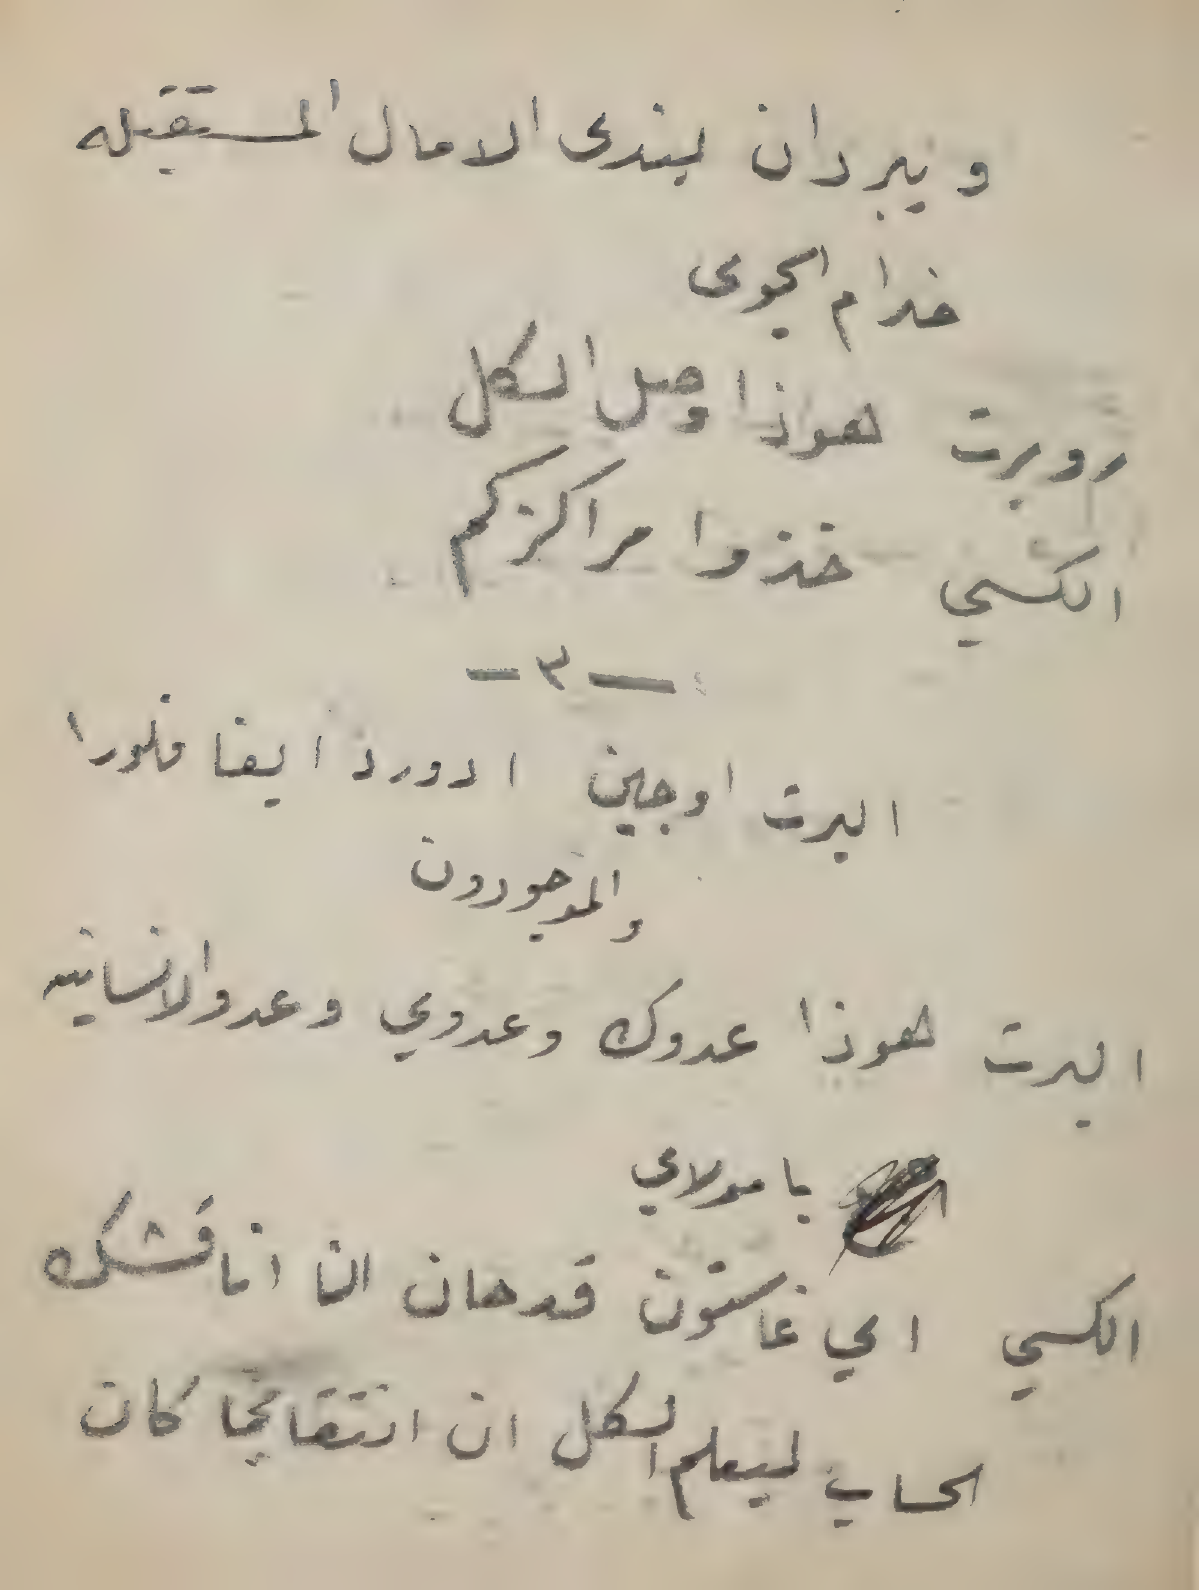 ويبردان بندى الامال المستقبله
ضرام الجوى
روبرت هوذا وصل الكل
الكسي خذوا مراكزكم
— ٣ —
البرت اوجين ادورد ايفا فلورا
والموجودون
البرت هوذا عدوك وعدوي وعدو الانسانيه
يا مولاي
الكسي اي غاستون قد حان ان اناقشك
الحساب ليعلم الكل ان انتقامي كان